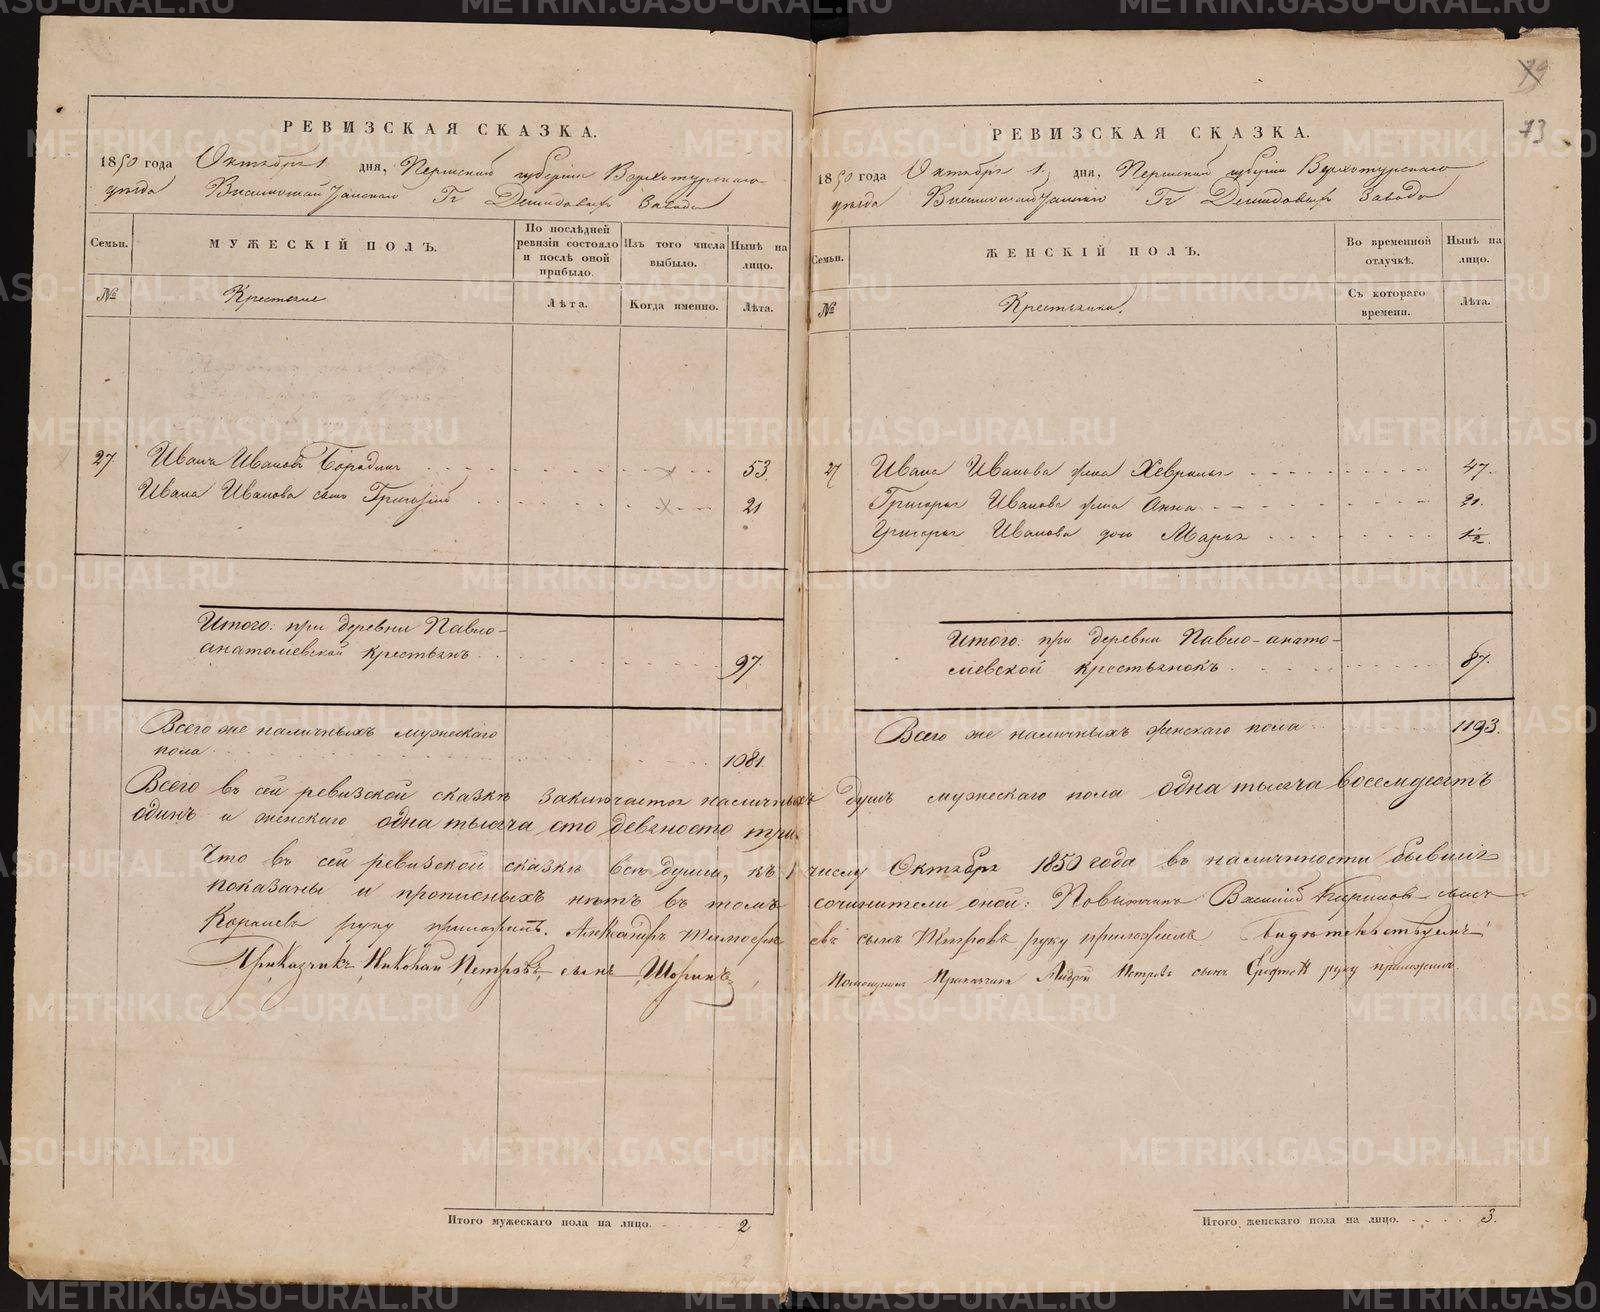 79
73
РЕВИЗСКАЯ СКАЗКА.
1850 года Октября 1 дня, Пермской губернiи Верхотурскаго
уѣзда Висимошайтанскаго Гг Демидовыхъ Завода
Семьи. МУЖЕСКIЙ ПОЛЪ. По послѣдней ревизiи состояло и послѣ оной прибыло. Изъ того числа выбыло. Нынѣ на лицо.
№ Крестьяне Лѣта. Когда именно. Лѣта.
27. Иванъ Ивановъ Бородинъ 53.
Ивана Иванова сынъ Григорiй 21
Итого: при деревни Павло-
анатолевской крестьянъ 97.
Всего же наличныхъ мужескаго
пола 1081.
РЕВИЗСКАЯ СКАЗКА.
1850 года Октября 1. дня, Пермской губернiи Верхотурскаго
уѣзда Висимошайтанскаго Гг Демидовыхъ Завода
Семьи. ЖЕНСКIЙ ПОЛЪ. Во временной отлучкѣ. Нынѣ на лицо.
№ Крестьянки. Съ котораго времени. Лѣта.
27 Ивана Иванова жена Хеврония 47.
Григорья Иванова жена Анна 21.
Григорья Иванова дочь Марья 1½.
Итого: при деревни Павло-анато-
лiевской крестьянокъ 87.
Всего же наличныхъ женскаго пола 1193.
Всего въ сей ревизской сказкѣ заключается наличныхъ душъ мужескаго пола одна тысяча восемдесятъ
одинъ и женскаго одна тысяча сто девяносто три.
Что въ сей ревизской сказкѣ всѣ души, къ 1 числу Октября 1850 года въ наличности бывшiя
показаны и прописныхъ нѣтъ въ томъ сочинители оной: Повытчикъ Василiй
Королевъ руку приложилъ. Александръ сынъ Петровъ руку приложилъ
Прикащикъ Николай Петровъ сынъ Шоринъ Помощникъ Прикащика Андрей Петровъ сынъ руку приложилъ.
Итого мужескаго пола на лицо. 2
Итого женскаго пола на лицо. 3.
METRIKI.GASO-URAL.RU